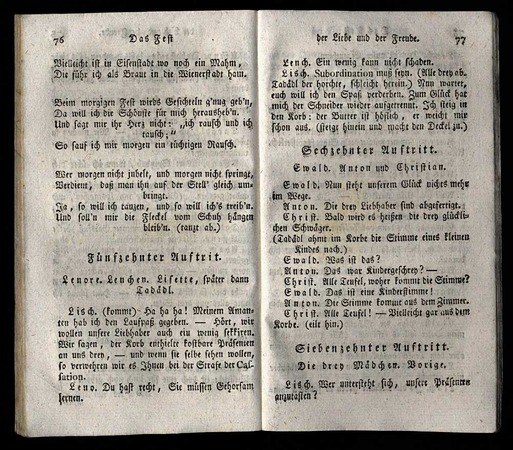 76 Das Fest
Vielleicht ist in Eisenstadt wo noch ein Mahm,
Die führ ich als Braut in die Wienerstadt ham.
Beym morgigen Fest wirds Gesichteln g'nug geb'n,
Da will ich die Schönste für mich herausheb'n.
Und sagt mir ihr Herz nicht: „ich rausch und ich
rausch;“
So sauf ich mir morgen ein tüchtigen Rausch.
Wer morgen nicht jubelt, und morgen nicht springe,
Verdient, daß man ihn auf der Stell' gleich um-
bringt.
Ja, so will ich tanzen, und so will ich's treib'n.
Und soll'n mir die Fleckel vom Schuh hängen
bleib'n. (tanzt ab.)
Fünfzehnter Auftrit.
Lenore. Lenchen. Lisette, später dann
Tadädl.
Lisch. (kommt) Ha ha ha! Meinem Aman-
ten hab ich den Laufpaß gegeben. — Hört, wir
wollen unsere Liebhaber auch ein wenig sekkiren.
Wir sagen, der Korb enthielte kostbare Präsenten
an uns drey, — und wenn sie selbe sehen wollen,
so verwehren wir es Ihnen bei der Strafe der Cas-
sation.
Leno. Du hast recht, Sie müssen Gehorsam
lernen.
der Liebe und der Freude. 77
Lench. Ein wenig kann nicht schaden.
Lisch. Subordination muß seyn. (Alle drey ab.
Tadädl der horchte, schleicht herein.) Nun wartet,
euch will ich den Spaß verderben. Zum Glück hat
mich der Schneider wieder aufgetrennt. Ich steig in
den Korb: der Butter ist höflich, er weicht mir
schon aus. (steigt hinein und macht den Deckel zu.)
Sechzehnter Auftritt.
Ewald. Anton und Christian.
Ewald. Nun steht unserem Glück nichts mehr
im Wege.
Anton. Die drey Liebhaber sind abgefertigt.
Christ. Bald wird es heißen die drey glückli-
chen Schwäger.
(Tadädl ahmt im Korbe die Stimme eines kleinen
Kindes nach.)
Ewald. Was ist das?
Anton. Das war Kindergeschrey? —
Christ. Alle Teufel, woher kommt die Stimme?
Ewald. Das ist eine Kinderstimme!
Anton. Die Stimme kommt aus dem Zimmer.
Christ. Alle Teufel! — Vielleicht gar aus dem
Korbe. (eilt hin.)
Siebenzehnter Auftritt.
Die drey Mädchen. Vorige.
Lisch. Wer untersteht sich, unsere Präsenten
anzutasten?